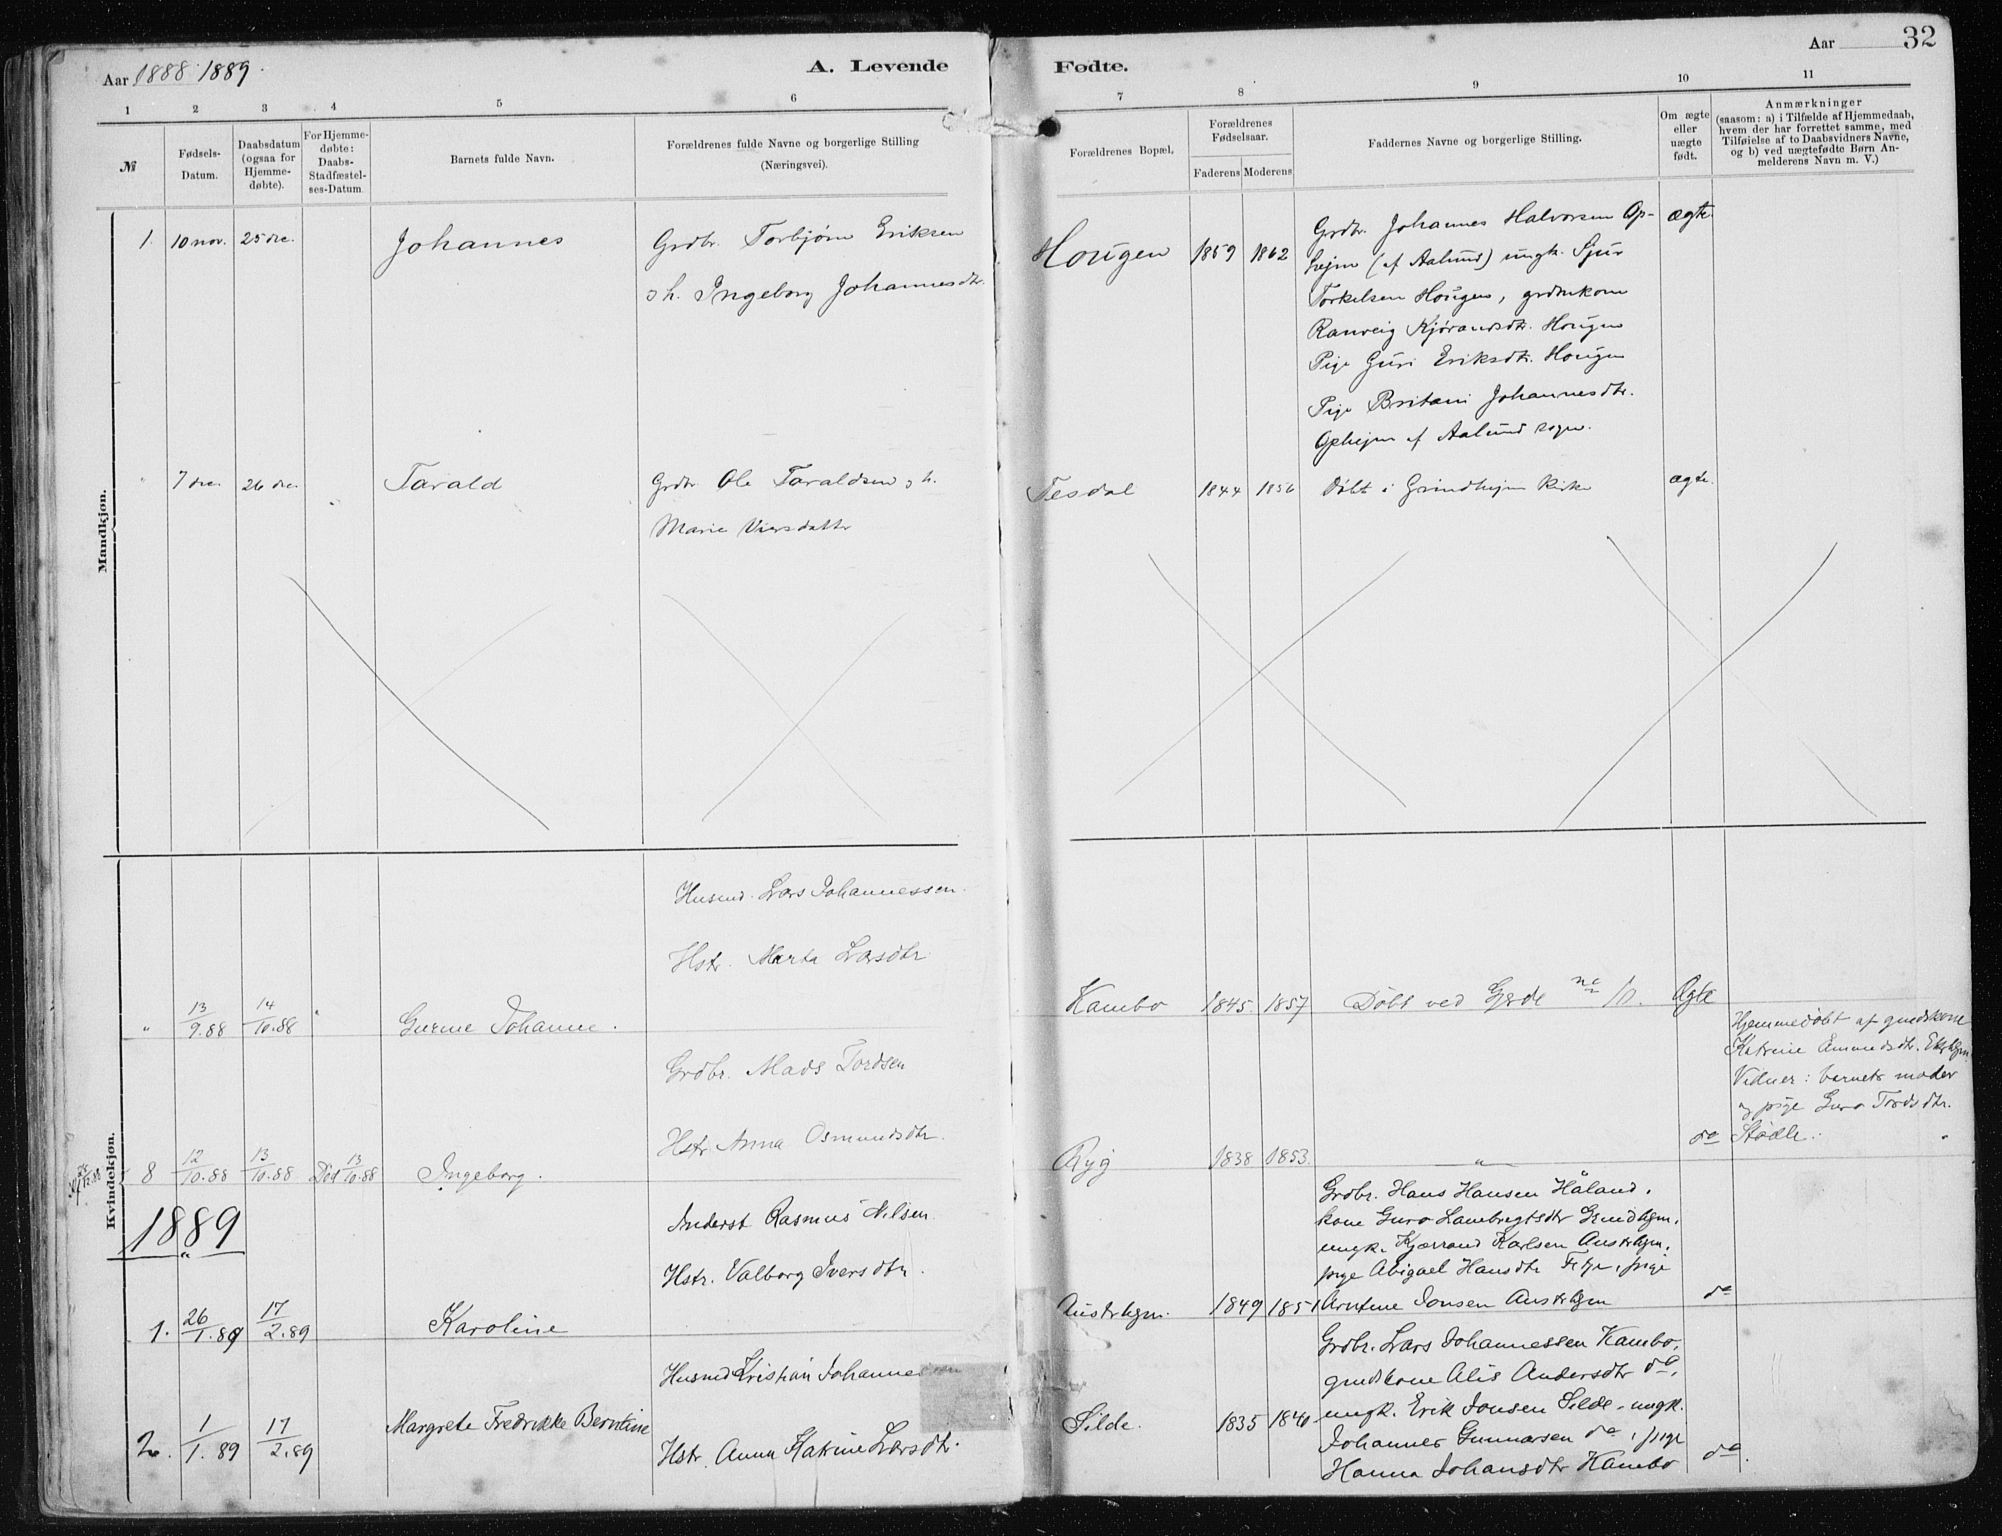 Aar 1888 1889.
A. Levende
Fødte.
Aar
32
1 2 3 4 5 6 7 8 9 10 11
№
Fødsels-
Datum.
Daabsdatum
(ogsaa for
Hjemme-
døbte).
For Hjemme-
døbte:
Daabs-
Stadfæstel-
ses-Datum.
Barnets fulde Navn.
Forældrenes fulde Navne og borgerlige Stilling
(Næringsvei).
Forældrenes Bopæl,
Forældrenes
Fødselsaar.
Faderens Moderens
Faddernes Navne og borgerlige Stilling.
Om ægte
eller
uægte
født.
Anmærkninger
(saasom: a) i Tilfælde af Hjemmedaab,
hvem der har forrettet samme, med
Tilføielse af to Daabsvidners Navne,
og b) ved uægtefødte Børn An-
melderens Navn m. V.)
Mandkjøn.
1. 10 nov. 25 dec. Johannes
Grdbr. Torbjørn Eriksen
o h. Ingeborg Johannesdtr.
Hougen 1859 1862
Grdbr. Johannes Halvorsen Op-
hejm (af Aalund) ungk. Sjur
Torkelsen Hougen, grdmkone
Ranveig Kjørandsdtr. Hougen
Pige Guri Eriksdtr. Hougen
Pige Britani Johannesdtr.
Ophejm af Aalund sogn.
ægte.
" 7 dec. 26 dec Tarald
Grdbr. Ole Taraldsen o h.
Marie Viersdatter
Tesdal 1844 1856 Døbt i Grindhejm Kirke ægte.
Kvindekjøn.
Husmd. Lars Johannessen.
Hstr. Marta Larsdtr.
" 13/9.88 14/10.88 " Gurine Johanne.
Kambo 1845. 1857 Døbt ved Gyede 10. Ægte
Grdbr. Mads Tordsen
Hstr. Anna Osmundsdtr.
8 12/10.88 13/10.88 Død 13/10.88 Ingeborg.
Ryg 1838 1853. " do
Hjemmedøbt af gmdskone
Katrine Amundsdtr.
Vidner: barnets moder
og pige Guro Tordsdtr.
Stødle.
1889
Inderst Rasmus Nilsen.
Hstr. Valborg Iversdtr.
1. 26/1.89 17/2.89 Karoline
Austrhgm. 1849 1851
Grdbr. Hans Hansen Håland.
kone Guro Lambregtsdtr Grindhgm.
ungk. Kjørrand Karlsen Austrhgm.
pige Abigael Hansdtr Fitje, pige
Arntine Jonsen Austrhgm
do
Husmd Kristian Johannessen
Hstr. Anna Katrine Larsdtr.
2. 1/1.89 17/2.89 Margrete Fredrikke Berntine
Silde. 1835 1840
Grdbr. Lars Johannessen Kambo.
gmdskone Alis Andersdtr do.
ungk. Erik Jonsen Silde. ungk.
Johannes Gunnarsen do, pige
Hanna Johansdtr Kambo
do.